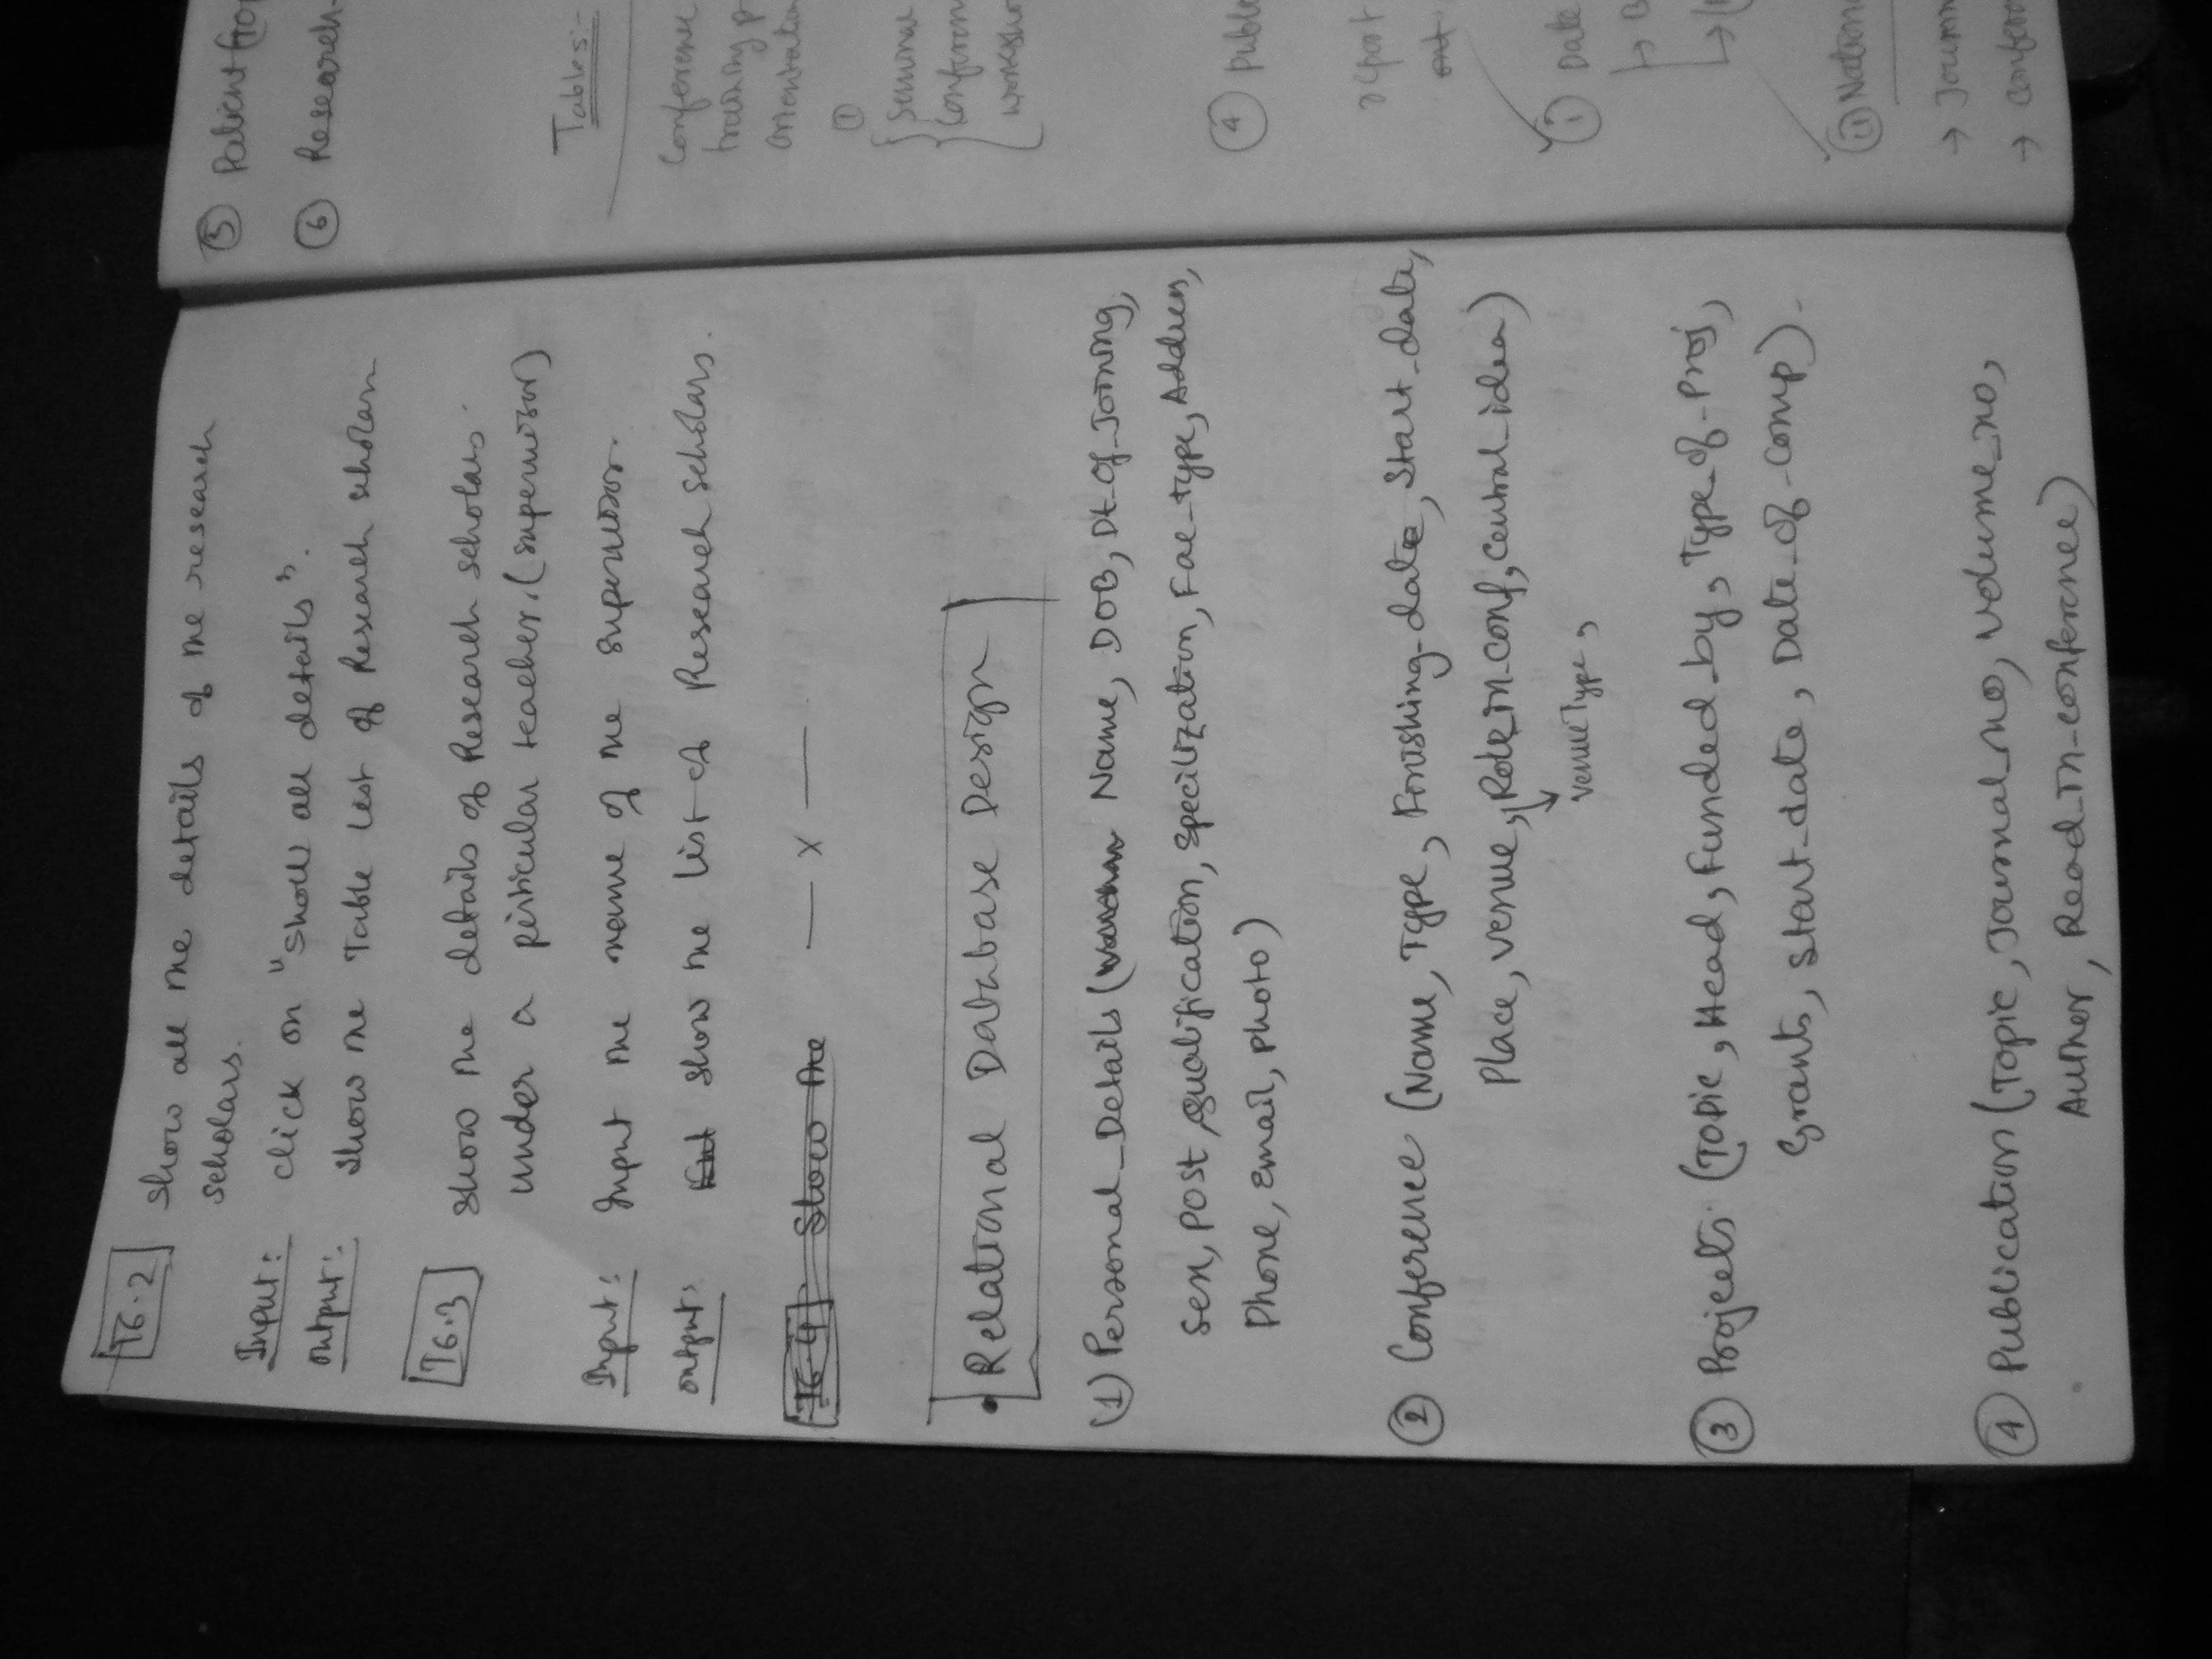 T6.2 Show all the details of the research
scholars.
Input: click on "Show all details".
output: Show the Table list of Research scholar
T6.3 Show the details of Research scholars.
under a perticular teacher. (supervisor)
Input: Input the name of the supervisor.
output: Show the list of Research scholars.
T6.4 Show the
— x —
• Relational Database Design
(1) Personal_Details (Name, DOB, Dt_Of_Joining,
Sex, Post, Qualification, Specilization, Fac_type, Address,
Phone, Email, Photo)
(2) Conference (Name, Type, Finishing_date, Start_date,
Place, Venue, Role_in_conf, Central_idea)
VenueType,
(3) Projects (Topic, Head, Funded_by, Type_of_Proj,
Grants, Start_date, Date_of_comp).
(4) Publication (Topic, Journal_no, volume_no,
Author, Read_in_conference)
(5) Patient
(6) Research
Tables:-
Conference
training p
orientation
(1)
(4)
report
(i) Date
(ii) Nation
→ Journ
→ Confer